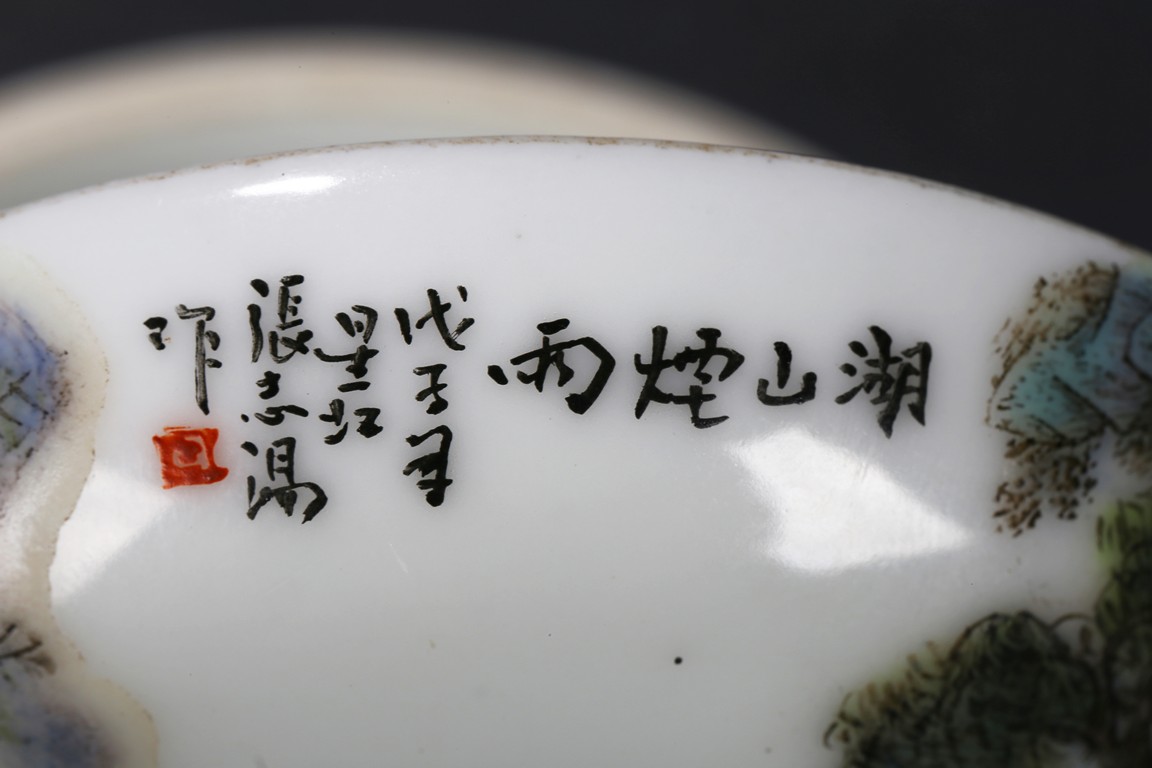 湖山煙雨
戊子
星江
張志湯
作